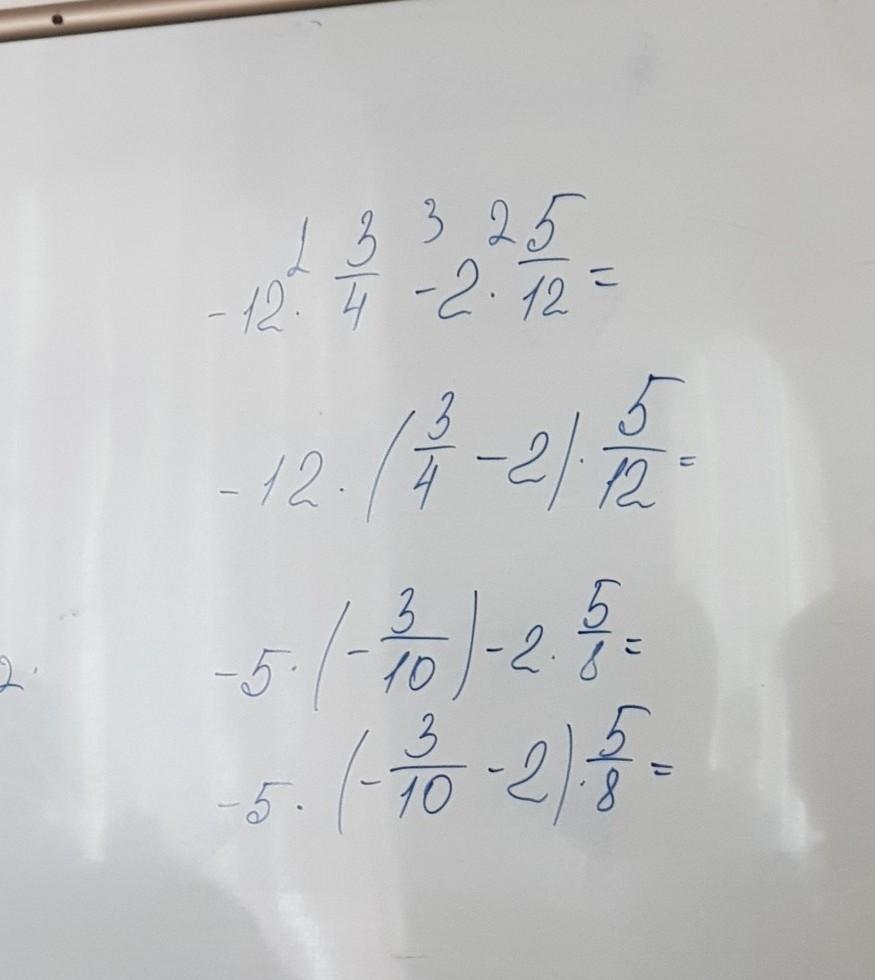 1 3 2
-12 · 3/4 - 2 · 5/12 =
-12 · (3/4 - 2) · 5/12 =
-5 · (-3/10) - 2 · 5/8 =
2.
-5 · (-3/10 - 2) · 5/8 =